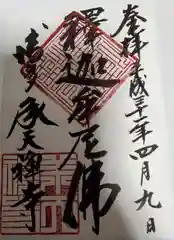 奉拝 平成三十一年四月九日
釋迦牟尼佛
博多 承天禅寺